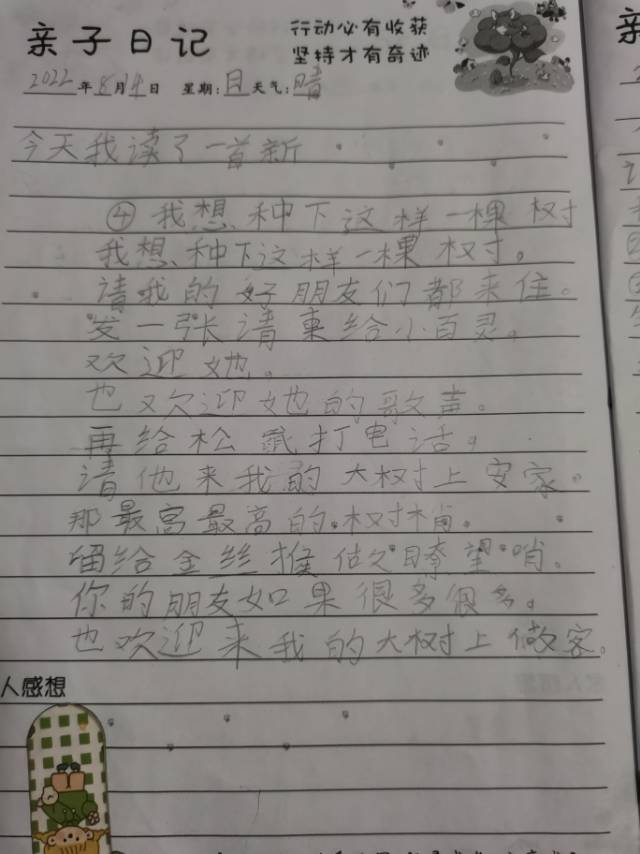 亲子日记
行动必有收获
坚持才有奇迹
2022年8月14日 星期:日 天气:晴
今天我读了一首新
④我想种下这样一棵树
我想种下这样一棵树。
请我的好朋友们都来住。
发一张请柬给小百灵。
欢迎她。
也欢迎她的歌声。
再给松鼠打电话。
请他来我的大树上安家。
那最高最高的树梢。
留给金丝猴做瞭望哨。
你的朋友如果很多很多。
也欢迎来我的大树上做客。
人感想